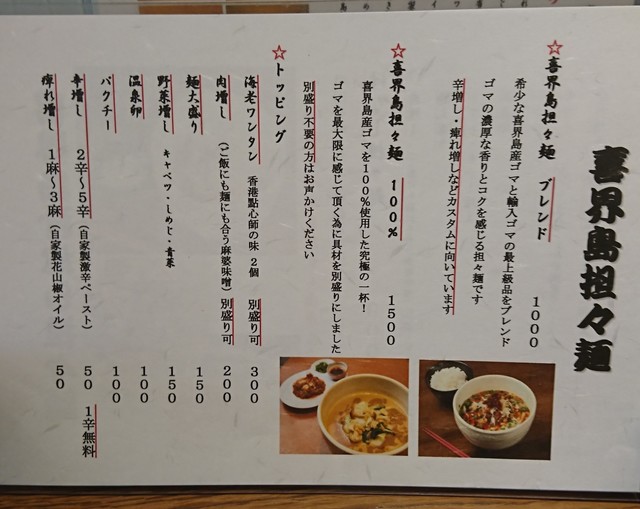 喜界島担々麺
☆喜界島担々麺 ブレンド 1000
希少な喜界島産ゴマと輸入ゴマの最上級品をブレンド
ゴマの濃厚な香りとコクを感じる担々麺です
辛増し・痺れ増しなどカスタムに向いています
☆喜界島担々麺 100% 1500
喜界島産ゴマを100%使用した究極の一杯!
ゴマを最大限に感じて頂く為に具材を別盛りにしました
別盛り不要の方はお声かけください
☆トッピング
海老ワンタン 香港點心師の味 2個 別盛り可 300
肉増し (ご飯にも麺にも合う麻婆味噌) 別盛り可 200
麺大盛り 150
野菜増し キャベツ・しめじ・青菜 150
温泉卵 100
パクチー 100
辛増し 2辛〜5辛 (自家製激辛ペースト) 50 1辛無料
痺れ増し 1麻〜3麻 (自家製花山椒オイル) 50